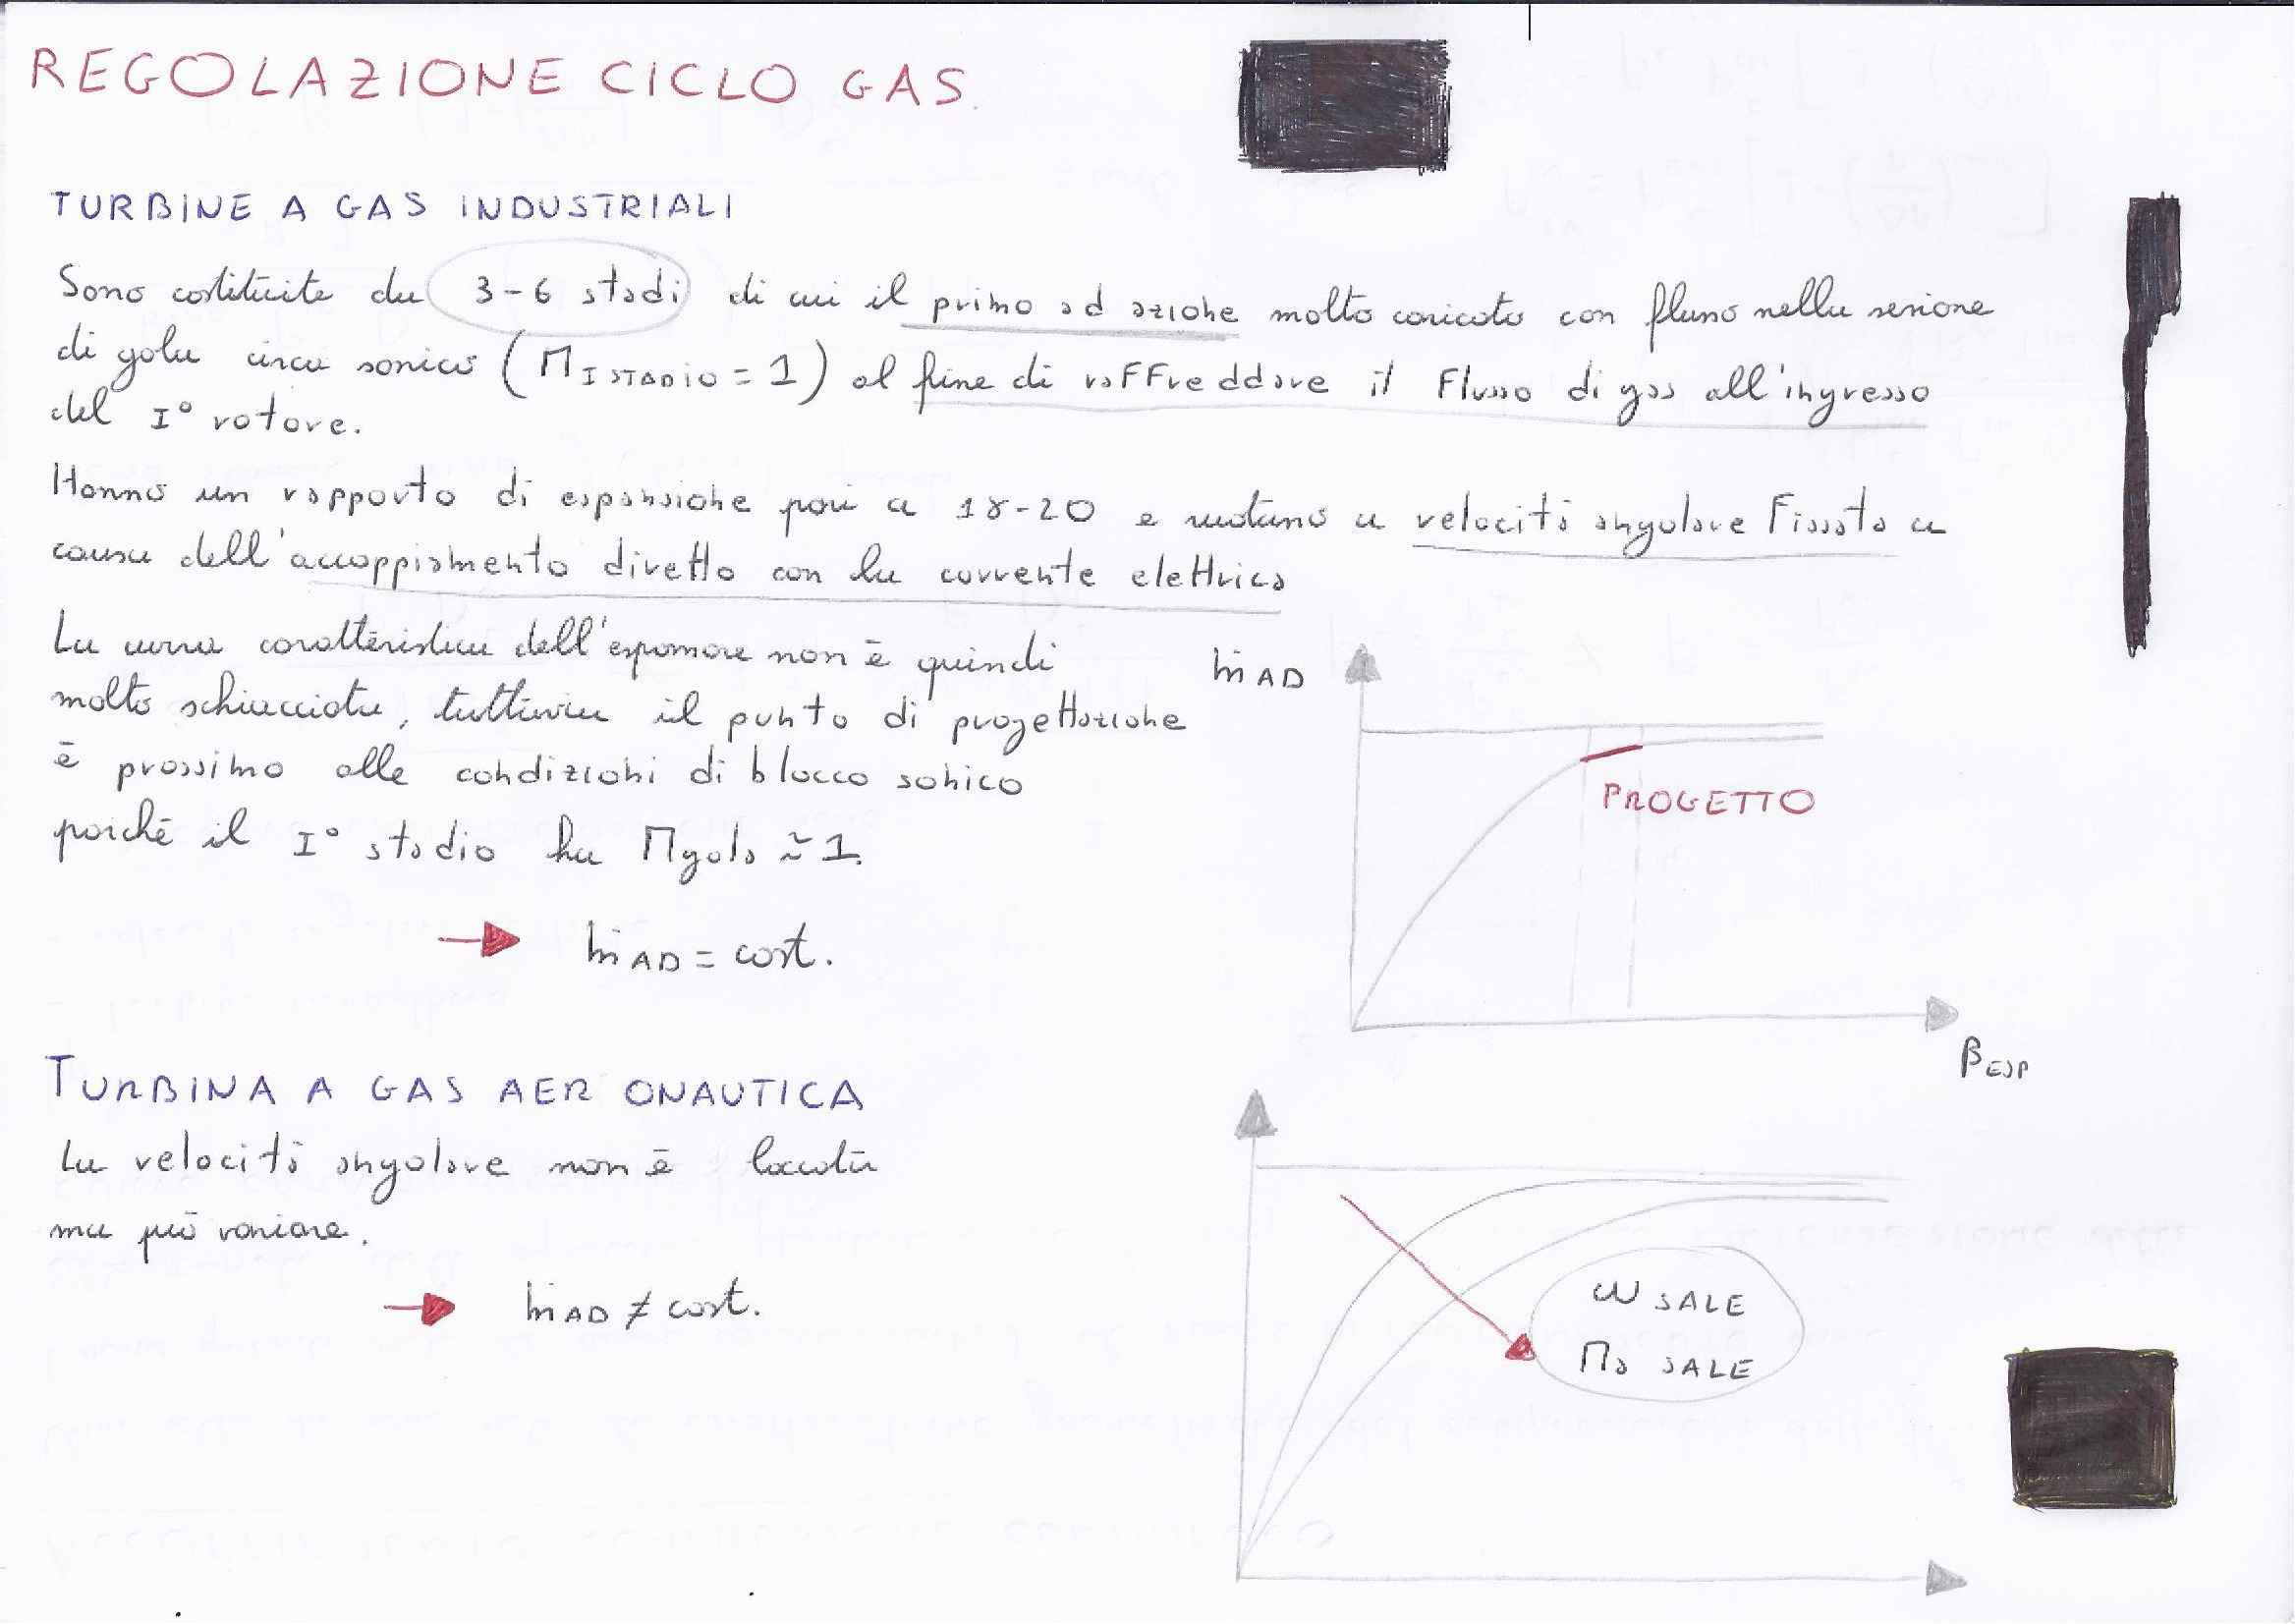 REGOLAZIONE CICLO GAS
TURBINE A GAS INDUSTRIALI
Sono costituite da 3-6 stadi di cui il primo ad azione molto caricato con flusso nella sezione
di gola circa sonico (M I STADIO = 1) al fine di raffreddare il flusso di gas all'ingresso
del I° rotore.
Hanno un rapporto di espansione pari a 18-20 e ruotano a velocità angolare fissata a
causa dell'accoppiamento diretto con la corrente elettrica
La curva caratteristica dell'espansore non è quindi
molto schiacciata, tuttavia il punto di progettazione
è prossimo alle condizioni di blocco sonico
poiché il I° stadio ha Mgola ≃ 1.
→ ṁAD = cost.
ṁAD
PROGETTO
βESP
TURBINA A GAS AERONAUTICA
La velocità angolare non è bloccata
ma può variare.
→ ṁAD ≠ cost.
ω SALE
Ms SALE